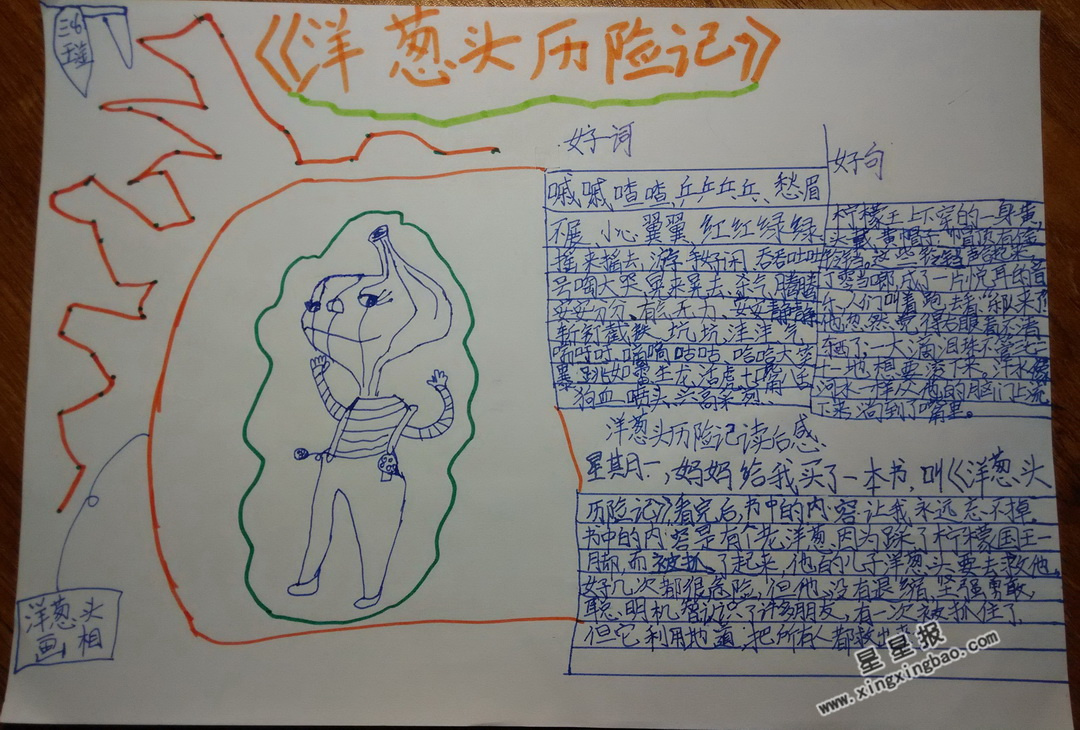 三(6)
王滢
《洋葱头历险记》
好词
嘁嘁喳喳、乒乒乓乓、愁眉
不展、小心翼翼、红红绿绿
摇来摇去、游手好闲、吞吞吐吐
号啕大哭、晃来晃去、杀气腾腾
妥妥分分、有气无力、安安静静
斩钉截铁、坑坑洼洼、气
嘀嘀咕咕、哈哈大笑
暴跳如雷、生龙活虎、七嘴八舌
狗血喷头、兴高采烈
好句
柠檬王上下穿的一身黄,
头戴黄帽子,帽顶有金
铃铛,这些铃铛声合起来,
丁零当啷,成了一片悦耳的音
乐,人们叫着跑去看:乐队来了
他忽然觉得右眼看不清
东西了,一大滴泪珠不管三七二
十一地想要滚下来。汗水像
河水一样从他的脑门上流
下来,淌到了嘴里。
洋葱头历险记读后感
星期一,妈妈给我买了一本书,叫《洋葱头
历险记》看完后,书中的内容让我永远忘不掉。
书中的内容是有个老洋葱,因为踩了柠檬国王一
脚,而被抓了起来,他的儿子洋葱头要去救他,
好几次都很危险,但他没有退缩,坚强勇敢,
聪明机智,认识了许多朋友,有一次被抓住了
但它利用地道,把所有人都救出
洋葱头
画相
星星报
www.xingxingbao.com